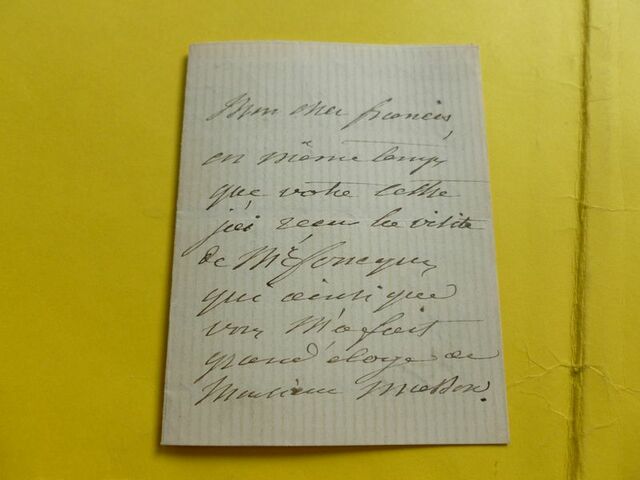 Mon cher francis,
en même temps
que votre lettre
j'ai reçu la visite
de Mr
que ainsi que
vous m'a fait
grand éloge de
Monsieur Masson.